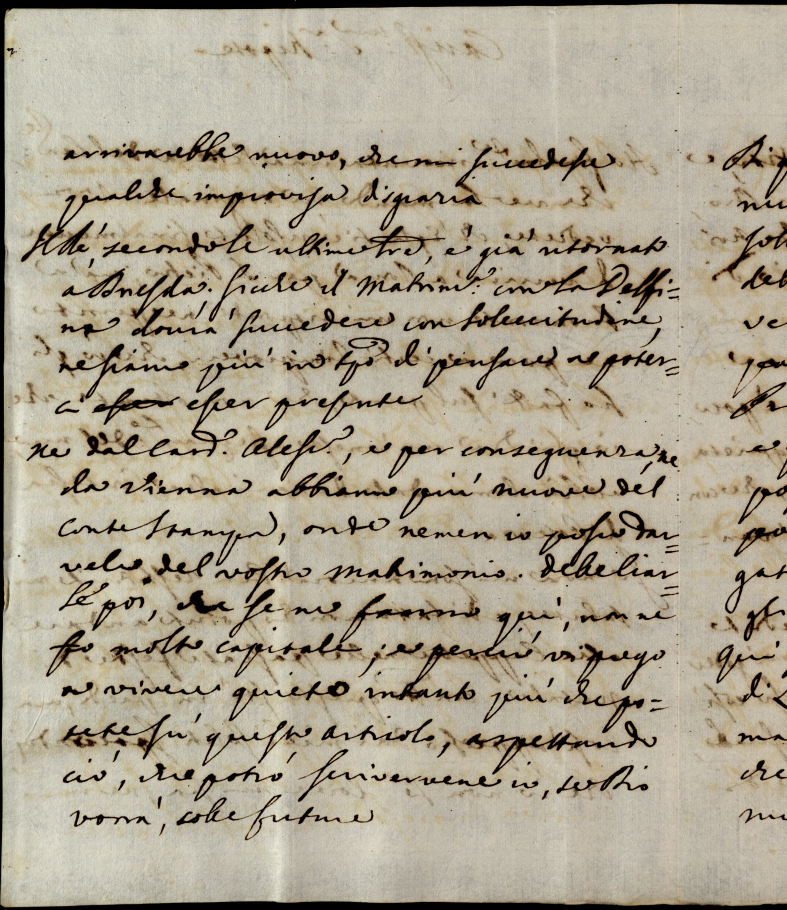 arrivarebbe nuovo, che mi succedesse
qualche improvisa disgrazia
secondo le ultime lre, è già ritornato
a Brescia; sicche il Matrim.º con la Delfi=
na dovrà succedere con sollecitudine,
ne siamo più in tpo di pensare a poter=
ci esser presente
ne dal Card.º Aless.º, e per conseguenza, ne
da Vienna abbiamo più nuove del
Conte Stampa, onde nemen io posso dar=
vele del vostro matrimonio. Delle ciar=
le poi, che se ne fanno qui, non ne
fo molto capitale; e perciò vi prego
a vivere quieto intanto più che po=
tete sù questo articolo, aspettando
ciò, che potrò scrivervene io, se Dio
vorrà, colle future
Di
nu
sol
deb
ve
Pr
e
po
gat
gli
qui
di
ma
che